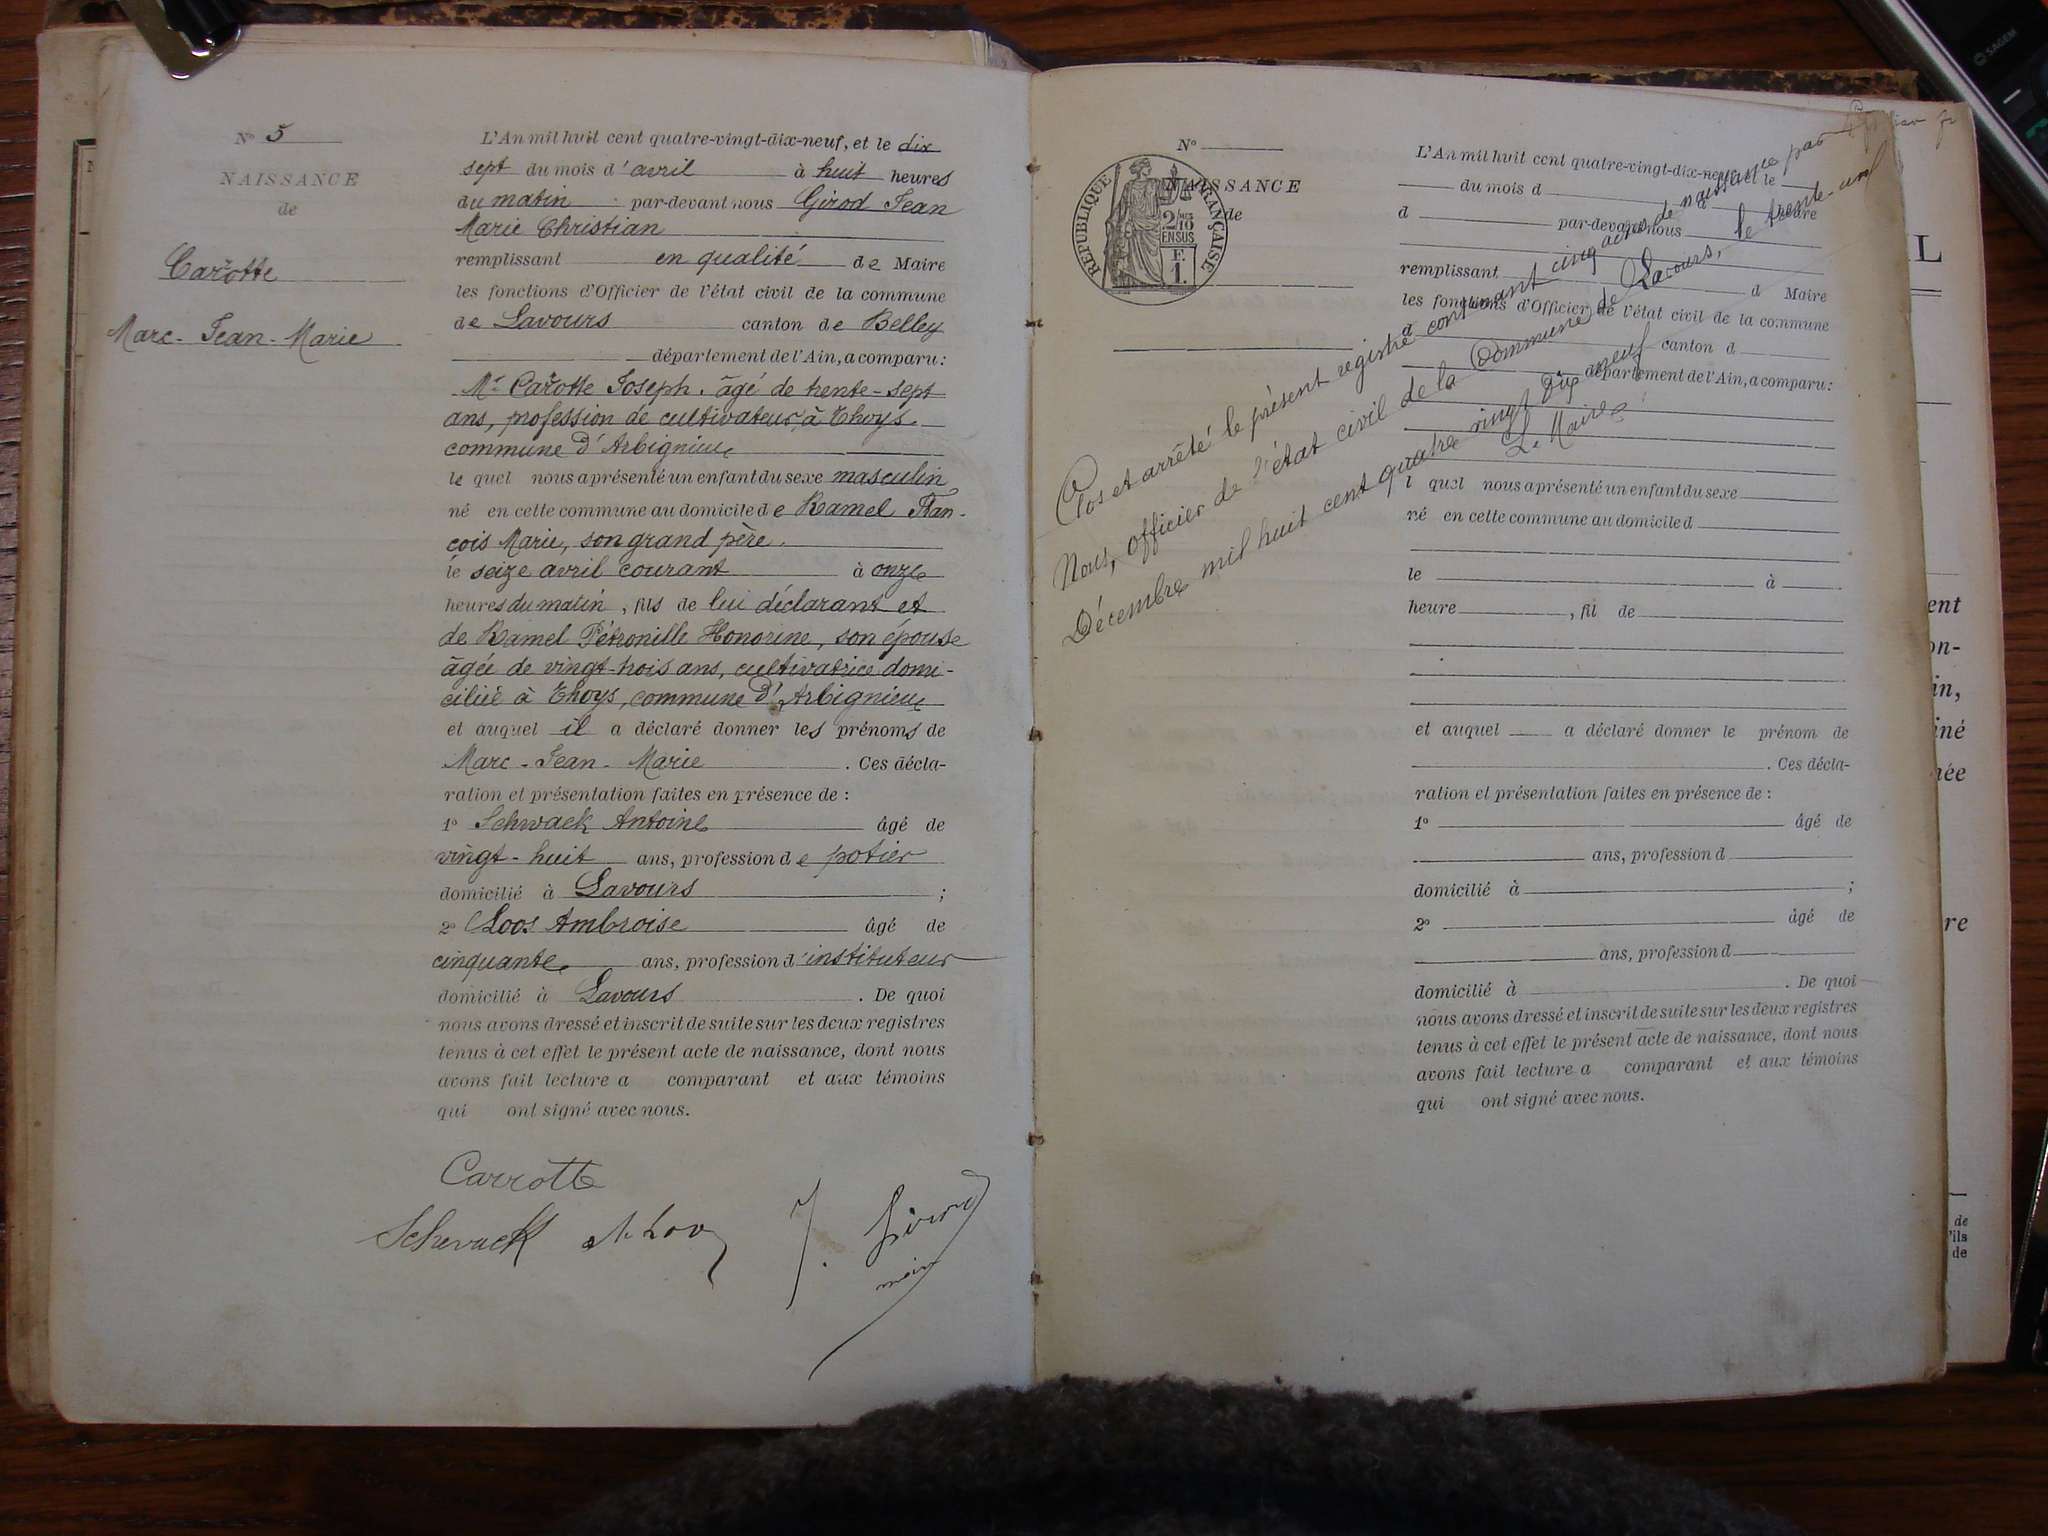 N° 5
NAISSANCE
de
Carotte
Marc-Jean-Marie
L'An mil huit cent quatre-vingt-dix-neuf, et le dix
sept du mois d'avril à huit heures
du matin par-devant nous Girod Jean
Marie Christian
remplissant en qualité de Maire
les fonctions d'Officier de l'état civil de la commune
de Lavours canton de Belley
département de l'Ain, a comparu:
Mr Carotte Joseph. âgé de trente-sept
ans, profession de cultivateur, à Thoys
commune d'Arbignieu
le quel nous a présenté un enfant du sexe masculin
né en cette commune au domicile de Ramel Fran-
cois Marie, son grand père.
le seize avril courant à onze
heures du matin, fils de lui déclarant et
de Ramel Pétronille Honorine, son épouse
âgée de vingt-trois ans, cultivatrice domi-
ciliée à Thoys, commune d'Arbignieu
et auquel il a déclaré donner les prénoms de
Marc-Jean-Marie. Ces décla-
ration et présentation faites en présence de:
1° Schwack Antoine âgé de
vingt-huit ans, profession de potier
domicilié à Lavours;
2° Loos Ambroise âgé de
cinquante ans, profession d'instituteur
domicilié à Lavours. De quoi
nous avons dressé et inscrit de suite sur les deux registres
tenus à cet effet le présent acte de naissance, dont nous
avons fait lecture a comparant et aux témoins
qui ont signé avec nous.
Carrotte
Schwack A Loos J. Girod
maire
N°
NAISSANCE
de
RÉPUBLIQUE FRANÇAISE
2/10
EN SUS
F.
1.
L'An mil huit cent quatre-vingt-dix-neuf, et le
du mois d à heure
d par-devant nous
remplissant d Maire
les fonctions d'Officier de l'état civil de la commune
d canton d
département de l'Ain, a comparu:
l quel nous a présenté un enfant du sexe
né en cette commune au domicile d
le à
heure, fil de
et auquel a déclaré donner le prénom de
. Ces décla-
ration et présentation faites en présence de:
1° âgé de
ans, profession d
domicilié à ;
2° âgé de
ans, profession d
domicilié à . De quoi
nous avons dressé et inscrit de suite sur les deux registres
tenus à cet effet le présent acte de naissance, dont nous
avons fait lecture a comparant et aux témoins
qui ont signé avec nous.
Clos et arrêté le présent registre contenant cinq actes de naissance par
Nous, officier de l'état civil de la Commune de Lavours, le trente-un
Décembre mil huit cent quatre vingt dix neuf
Le Maire
L
ent
on-
in,
iné
née
re
de
fils
de
SAGEM